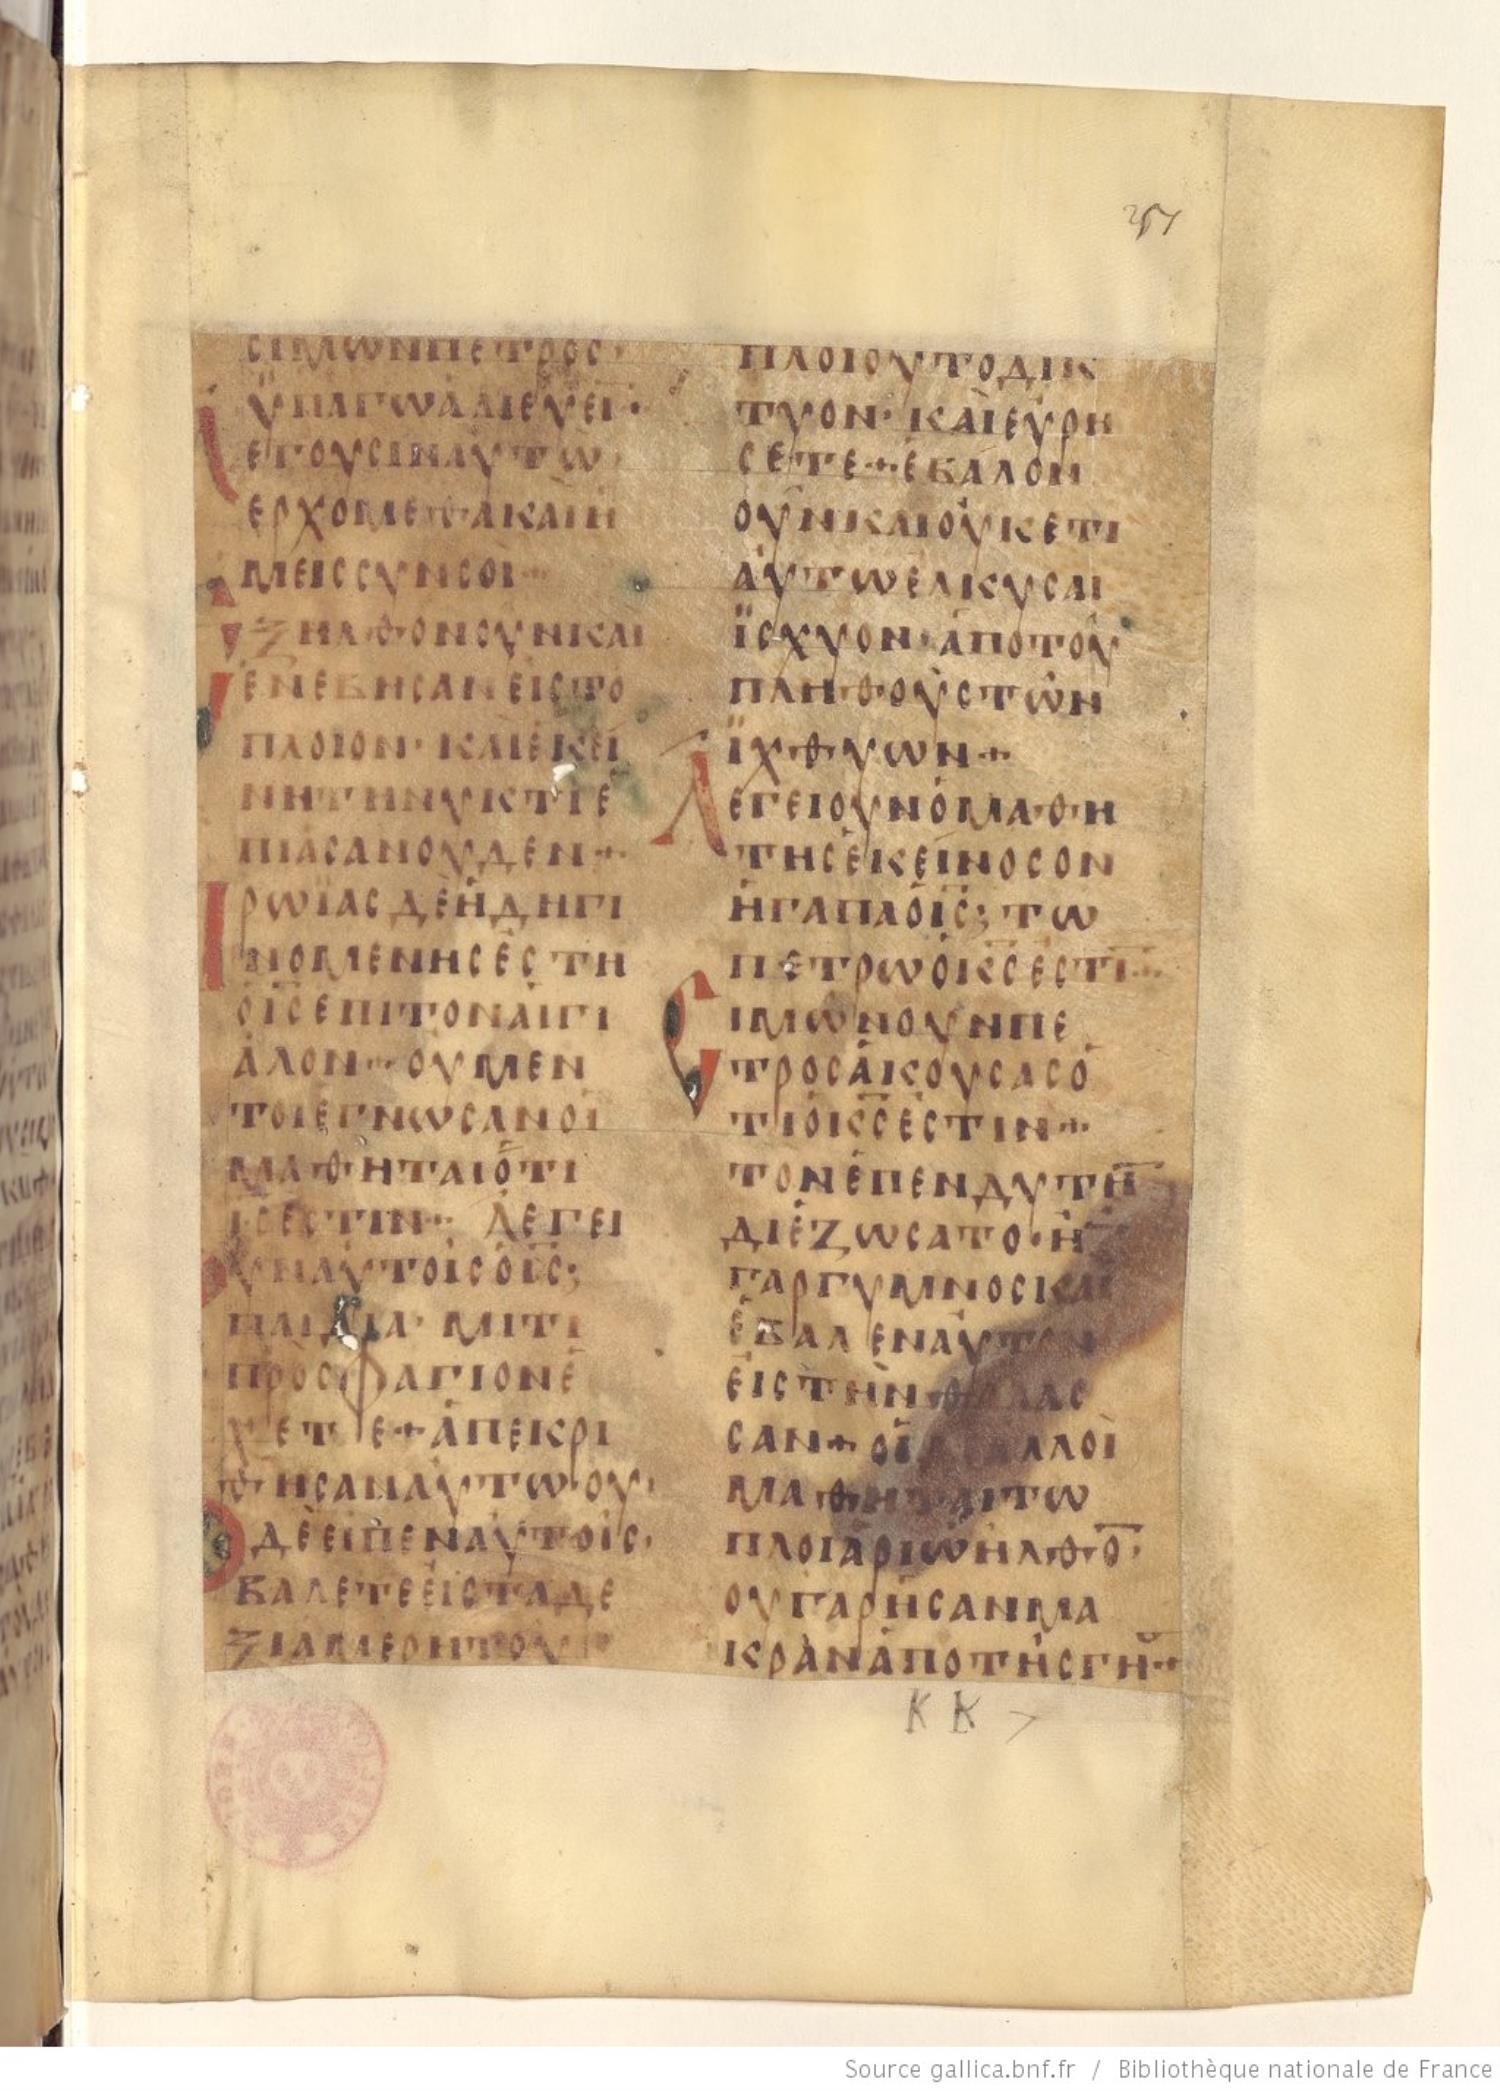 ϲιμωνπετροϲ·
ϋπαγωἁλιεύειν·
λεγουϲιναυτω·
ερχομεθακαιη
μειϲϲυνϲοι·
ξηλθονουνκαι
ἐνεβηϲανειϲτο
πλοιον·καιἐκεί
νητηνυκτιἐ
πιαϲανουδεν+
πρωϊαϲδὲἤδηγι
νομενηϲἐϲτη
ὁιϲεπιτοναἰγι
ἀλον+ουμεν
τοιεγνωϲανοἱ
μαθηταιὅτι
ιϲεϲτιν+λεγει
ουναυτοιϲὁιϲ·
παιδια·μητι
προϲφαγιονἐ
χετε+ἀπεκρι
θηϲαναυτω·ου·
οδὲειπεναυτοιϲ·
βαλετεεἰϲταδε
ξιαμερητου
πλοιουτοδικ
τυον·καιεὑρη
ϲετε+ἐβαλον
ουνκαιοὐκετι
αὐτωἑλκυϲαι
ἴϲχυον·ἀποτοῦ
πληθουϲτῶν
ἰχθυων+
λεγειουνὁμαθη
τηϲἐκεῖνοϲον
ἠγαπαὁιϲ·τω
πετρωὁκϲἐϲτι+
ϲιμωνουνπε
τροϲἀκουϲαϲὁ
τιὁκϲἐϲτιν+
τονἐπενδυτη
διἐζωϲατο·ἦ
γαργυμνοϲκαι
ἐβαλεναὑτον
ειϲτὴνθαλαϲ
ϲαν+οἱδεαλλοἱ
μαθηταιτω
πλοιαριωηλθο·
ουγαρἠϲανμα
κρὰνἀποτῆϲγῆ+
K K >
Source gallica.bnf.fr / Bibliothèque nationale de France